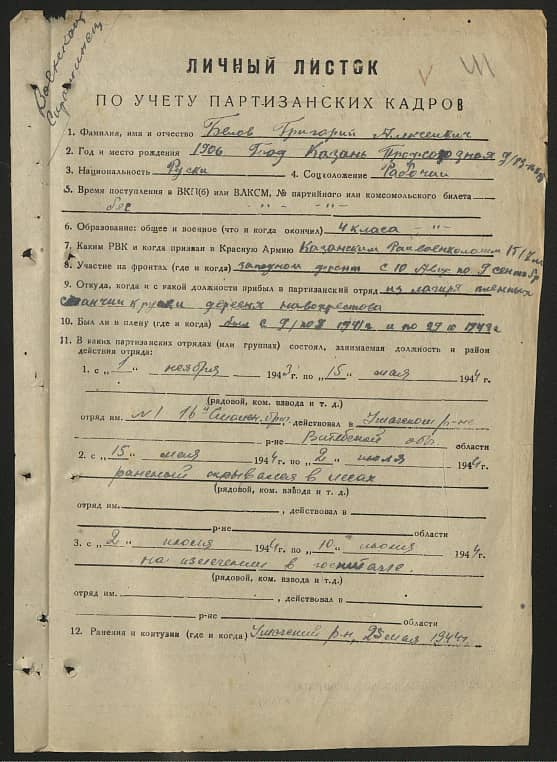 Военнопл
ЛИЧНЫЙ ЛИСТОК
ПО УЧЕТУ ПАРТИЗАНСКИХ КАДРОВ
1. Фамилия, имя и отчество Белов Григорий Алексеевич
2. Год и место рождения 1906 Год Казань Профсоюзная
3. Национальность Руски 4. Соцположение Рабочий
5. Время поступления в ВКП(б) или ВЛКСМ, № партийного или комсомольского билета
бес - " - - " -
6. Образование: общее и военное (что и когда окончил) 4 класа - " -
7. Каким РВК и когда призван в Красную Армию Казанским
8. Участие на фронтах (где и когда) западном фронт с 10 Авгу по 9 сентябр
9. Откуда, и с какой должности прибыл в партизанский отряд из лагиря пленных
деревня
10. Был ли в плену (где и когда) был с 9/ 1941г и по 29 1943г
11. В каких партизанских отрядах (или группах) состоял, занимаемая должность и район
действия отряда:
1. с „1" ноября 1943 г. по „15" мая 1944 г.
(рядовой, ком. взвода и т. д.)
отряд им. №1 16й Смолен. бриг. , действовал в Ушачском р-не
р-не Витебской обл. области
2. с „15" мая 1944 г. по „2" июля 1944 г.
раненый скрывался в лесах
(рядовой, ком. взвода и т. д.)
отряд им. , действовал в
р-не области
3. с „2" июля 1944 г. по „10" июля 1944 г.
на излечении в госпитале.
(рядовой, ком. взвода и т.д.)
отряд им. , действовал в
р-не области
12. Ранения и контузии (где и когда) Ушачский р-н, 23 мая 1944г.